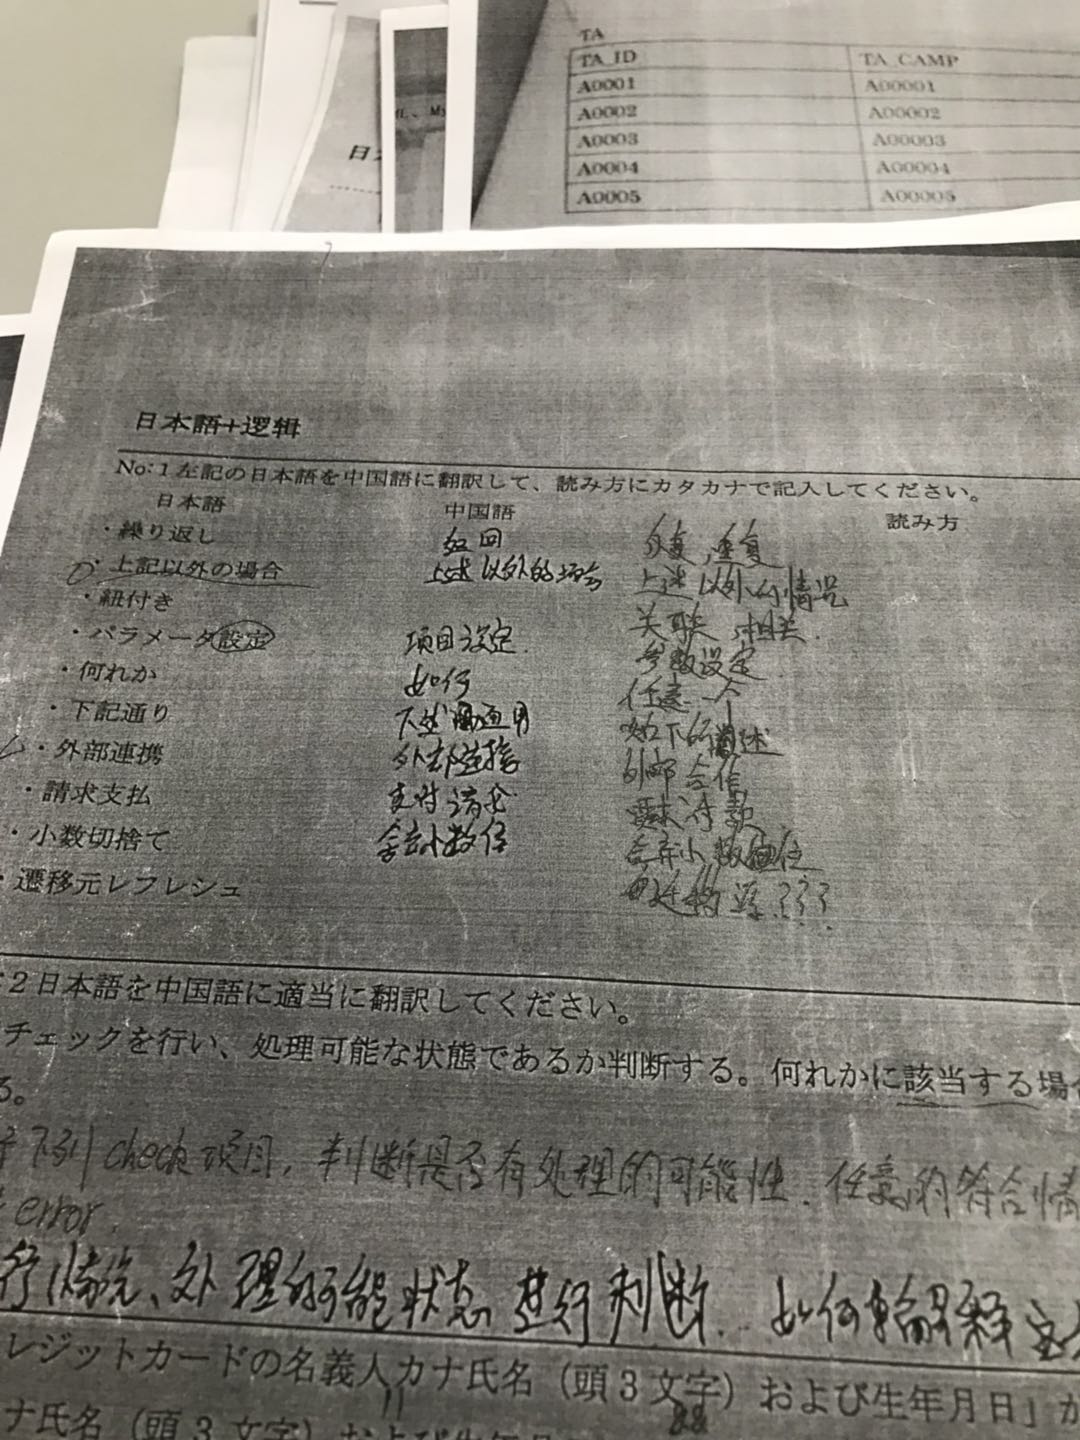 TA
TA_ID TA_CAMP
A0001 A00001
A0002 A00002
A0003 A00003
A0004 A00004
A0005 A00005
日本語+逻辑
No:1 左記の日本語を中国語に翻訳して、読み方にカタカナで記入してください。
日本語 中国語 読み方
・繰り返し 返回 反复,重复
・上記以外の場合 上述以外的场合 上述以外的情况
・紐付き 关联,相关.
・パラメータ設定 项目设定. 参数设定
・何れか 如何 任意一个
・下記通り 如下所述
・外部連携 外部连接 外部合作
・請求支払 支付请求 付款
・小数切捨て 舍去小数位 舍弃小数位
・遷移元レフレシュ ???
:2 日本語を中国語に適当に翻訳してください。
チェックを行い、処理可能な状態であるか判断する。何れかに該当する場合
る。
下列check项目,判断是否有处理的可能性.任意的符合情
error.
行情况、处理的可能状态进行判断. 如何解释
レジットカードの名義人カナ氏名（頭3文字）および生年月日」か
ナ氏名（頭3文字）および生年月